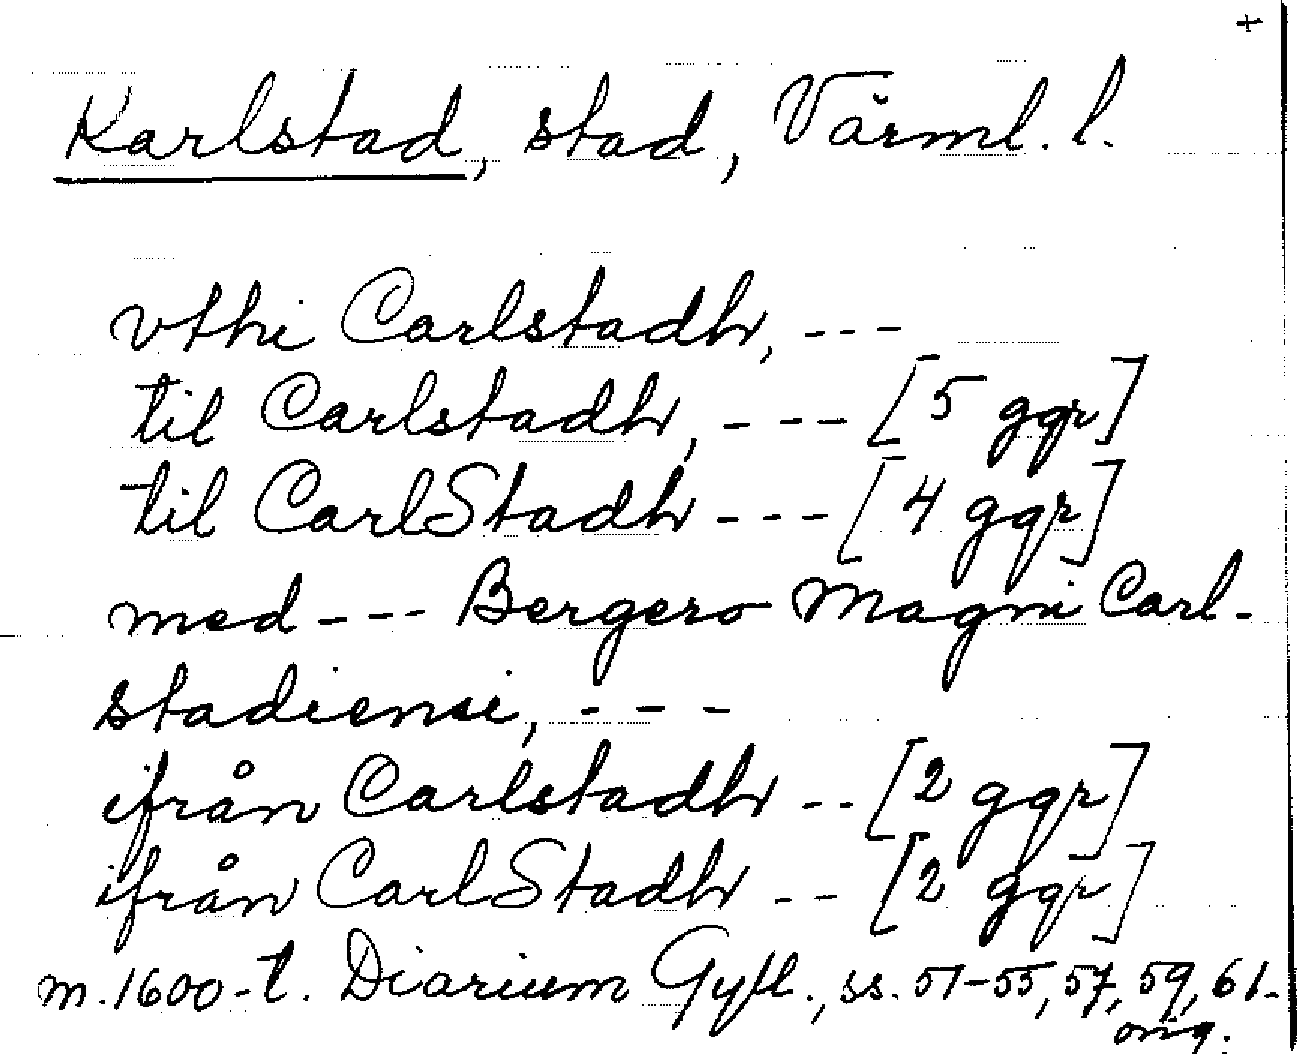 +
Karlstad, stad, Värml. l.
vthi Carlstadh, ---
til Carlstadh, --- [5 ggr]
til CarlStadh --- [4 ggr]
med --- Bergero Magni Carl-
stadiensi, ---
ifrån Carlstadh -- [2 ggr]
ifrån CarlStadh -- [2 ggr]
m. 1600-t. Diarium Gyll., ss. 51-55, 57, 59, 61.
orig.